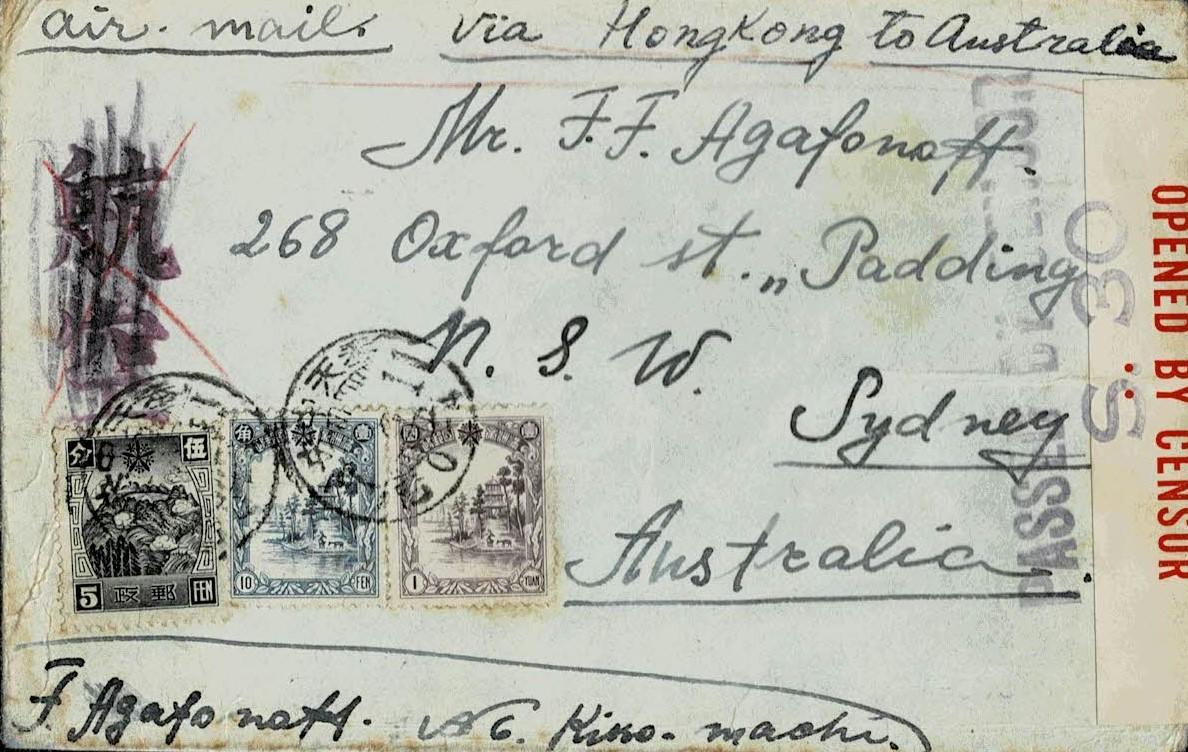 air. mail. via Hongkong to Australia
Mr. F.F. Agafonoff.
268 Oxford st. „ Padding
N. S. W.
Sydney
Australia.
航
PASSED BY CENSOR
S. 30
OPENED BY CENSOR
分 伍
5 政郵 FEN
角 壹
10 FEN
圓 壹
1 YUAN
F. Agafonoff. No 6. Kino-machi.